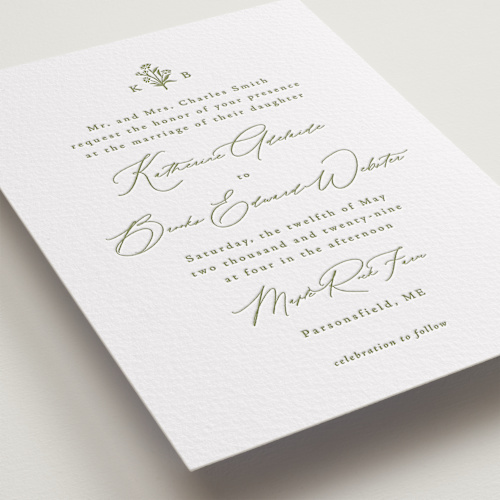 K B
Mr. and Mrs. Charles Smith
request the honor of your presence
at the marriage of their daughter
Katherine Adelaide
to
Brooks Edward Webster
Saturday, the twelfth of May
two thousand and twenty-nine
at four in the afternoon
Maple Rock Farm
Parsonsfield, ME
celebration to follow